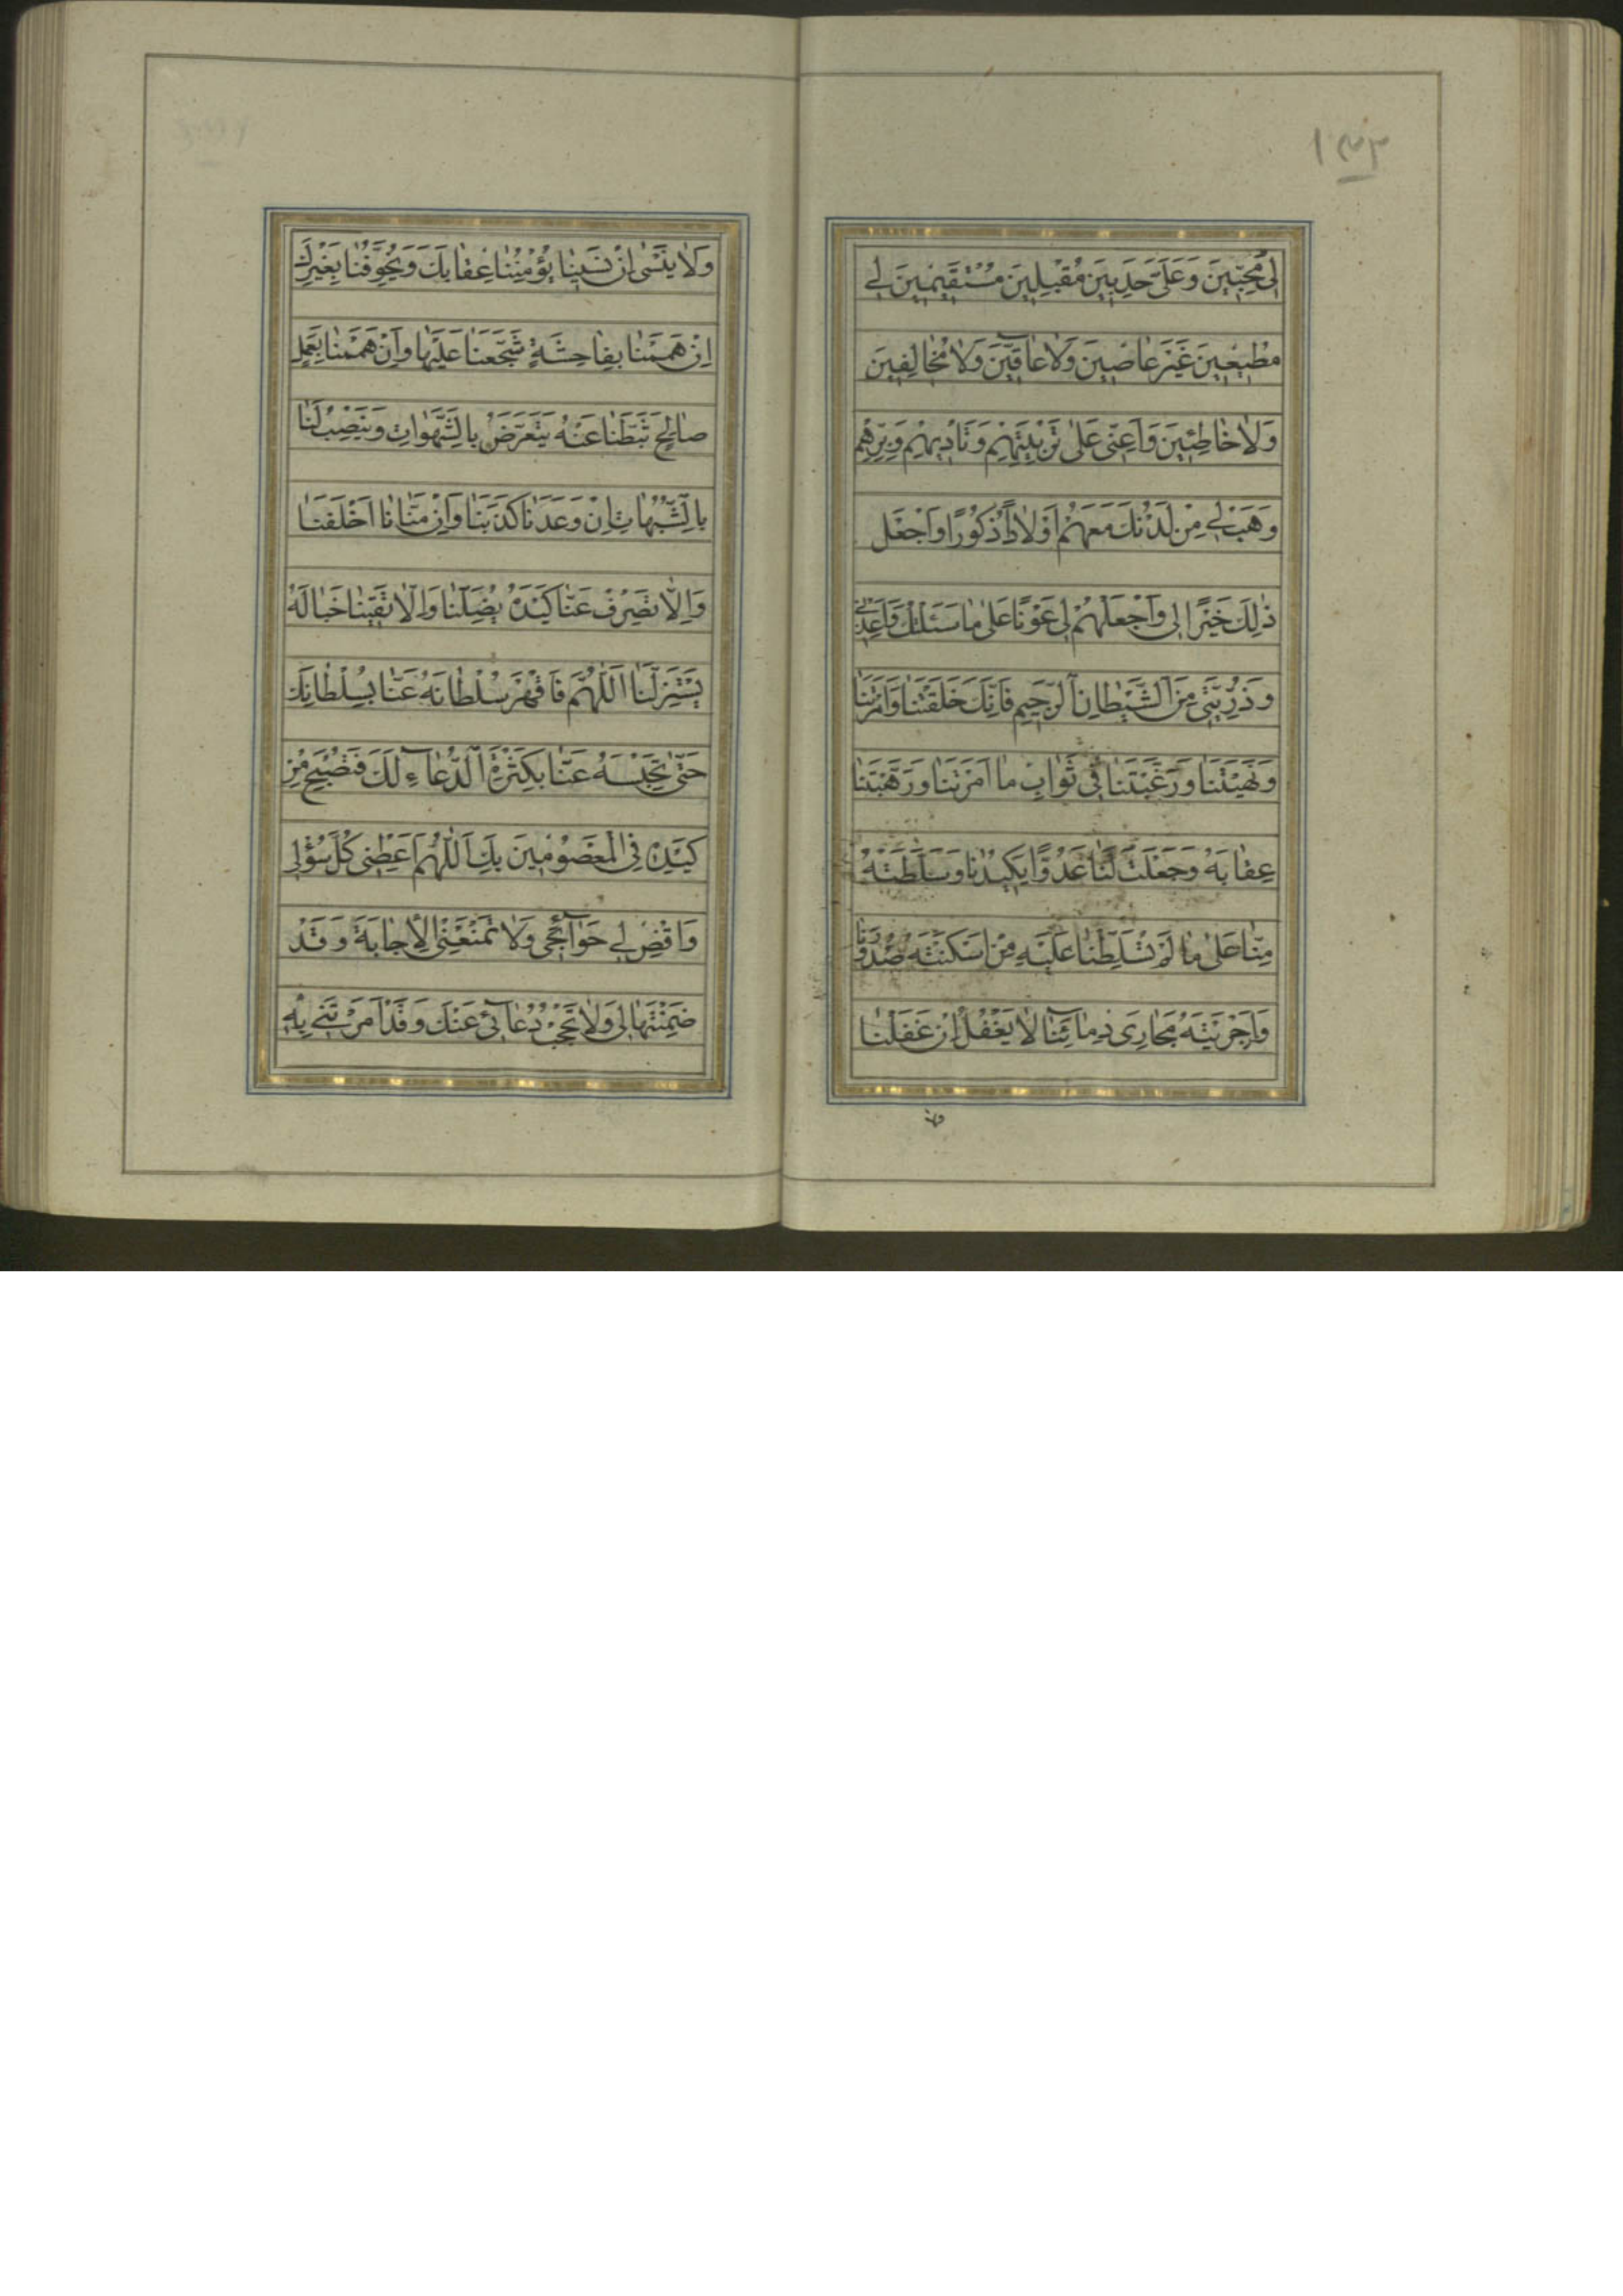 ١٣٣
لِی مُحِبّینَ وَعَلَیَّ حَدِبینَ مُقْبِلینَ مُسْتَقیمینَ لی
مُطیعینَ غَیْرَ عاصینَ وَلا عآقّینَ وَلا مُخالِفینَ
وَلا خاطِئینَ وَاَعِنّی عَلیٰ تَرْبِیَتِهِمْ وَتَاْدیبِهِمْ وَبِرِّهِمْ
وَهَبْ لی مِنْ لَدُنْكَ مَعَهُمْ اَوْلاداً ذُكُورًا وَاجْعَلْ
ذٰلِكَ خَیْرًا لی وَاجْعَلْهُمْ لی عَوْنًا عَلیٰ ما سَئَلْتُكَ وَاَعِذْنی
وَذُرِّیَّتی مِنَ الشَّیْطانِ الرَّجیمِ فَاِنَّكَ خَلَقْتَنا وَاَمَرْتَنا
وَنَهَیْتَنا وَرَغَّبْتَنا فی ثَوابِ ما اَمَرْتَنا وَرَهَّبْتَنا
عِقابَهُ وَجَعَلْتَ لَنا عَدُوًّا یَكیدُنا وَسَلَّطْتَهُ
مِنّا عَلیٰ ما لَمْ تُسَلِّطْنا عَلَیْهِ مِنْهُ اَسْكَنْتَهُ صُدُورَنا
وَاَجْرَیْتَهُ مَجارِیَ دِمآئِنا لا یَغْفُلُ اِنْ غَفَلْنا
وَلا یَنْسیٰ اِنْ نَسینا یُؤْمِنُنا عِقابَكَ وَیُخَوِّفُنا بِغَیْرِكَ
اِنْ هَمَمْنا بِفاحِشَةٍ شَجَّعَنا عَلَیْها وَاِنْ هَمَمْنا بِعَمَلٍ
صالِحٍ ثَبَّطَنا عَنْهُ یَتَعَرَّضُ بِالشَّهَواتِ وَیَنْصِبُ لَنا
بِالشُّبُهاتِ اِنْ وَعَدَنا كَذَبَنا وَاِنْ مَنّانا اَخْلَفَنا
وَاِلّا تَصْرِفْ عَنّا كَیْدَهُ یُضِلَّنا وَاِلّا تَقِینا خَبالَهُ
یَسْتَزِلَّنا اَللّٰهُمَّ فَاقْهَرْ سُلْطانَهُ عَنّا بِسُلْطانِكَ
حَتّیٰ تَحْبِسَهُ عَنّا بِكَثْرَةِ الدُّعآءِ لَكَ فَنُصْبِحَ مِنْ
كَیْدِهِ فِی الْمَعْصُومینَ بِكَ اَللّٰهُمَّ اَعْطِنی كُلَّ سُؤْلی
وَاقْضِ لی حَوآئِجی وَلا تَمْنَعْنِی الْاِجابَةَ وَقَدْ
ضَمِنْتَها لی وَلا تَحْجُبْ دُعآئی عَنْكَ وَقَدْ اَمَرْتَنی بِهِ